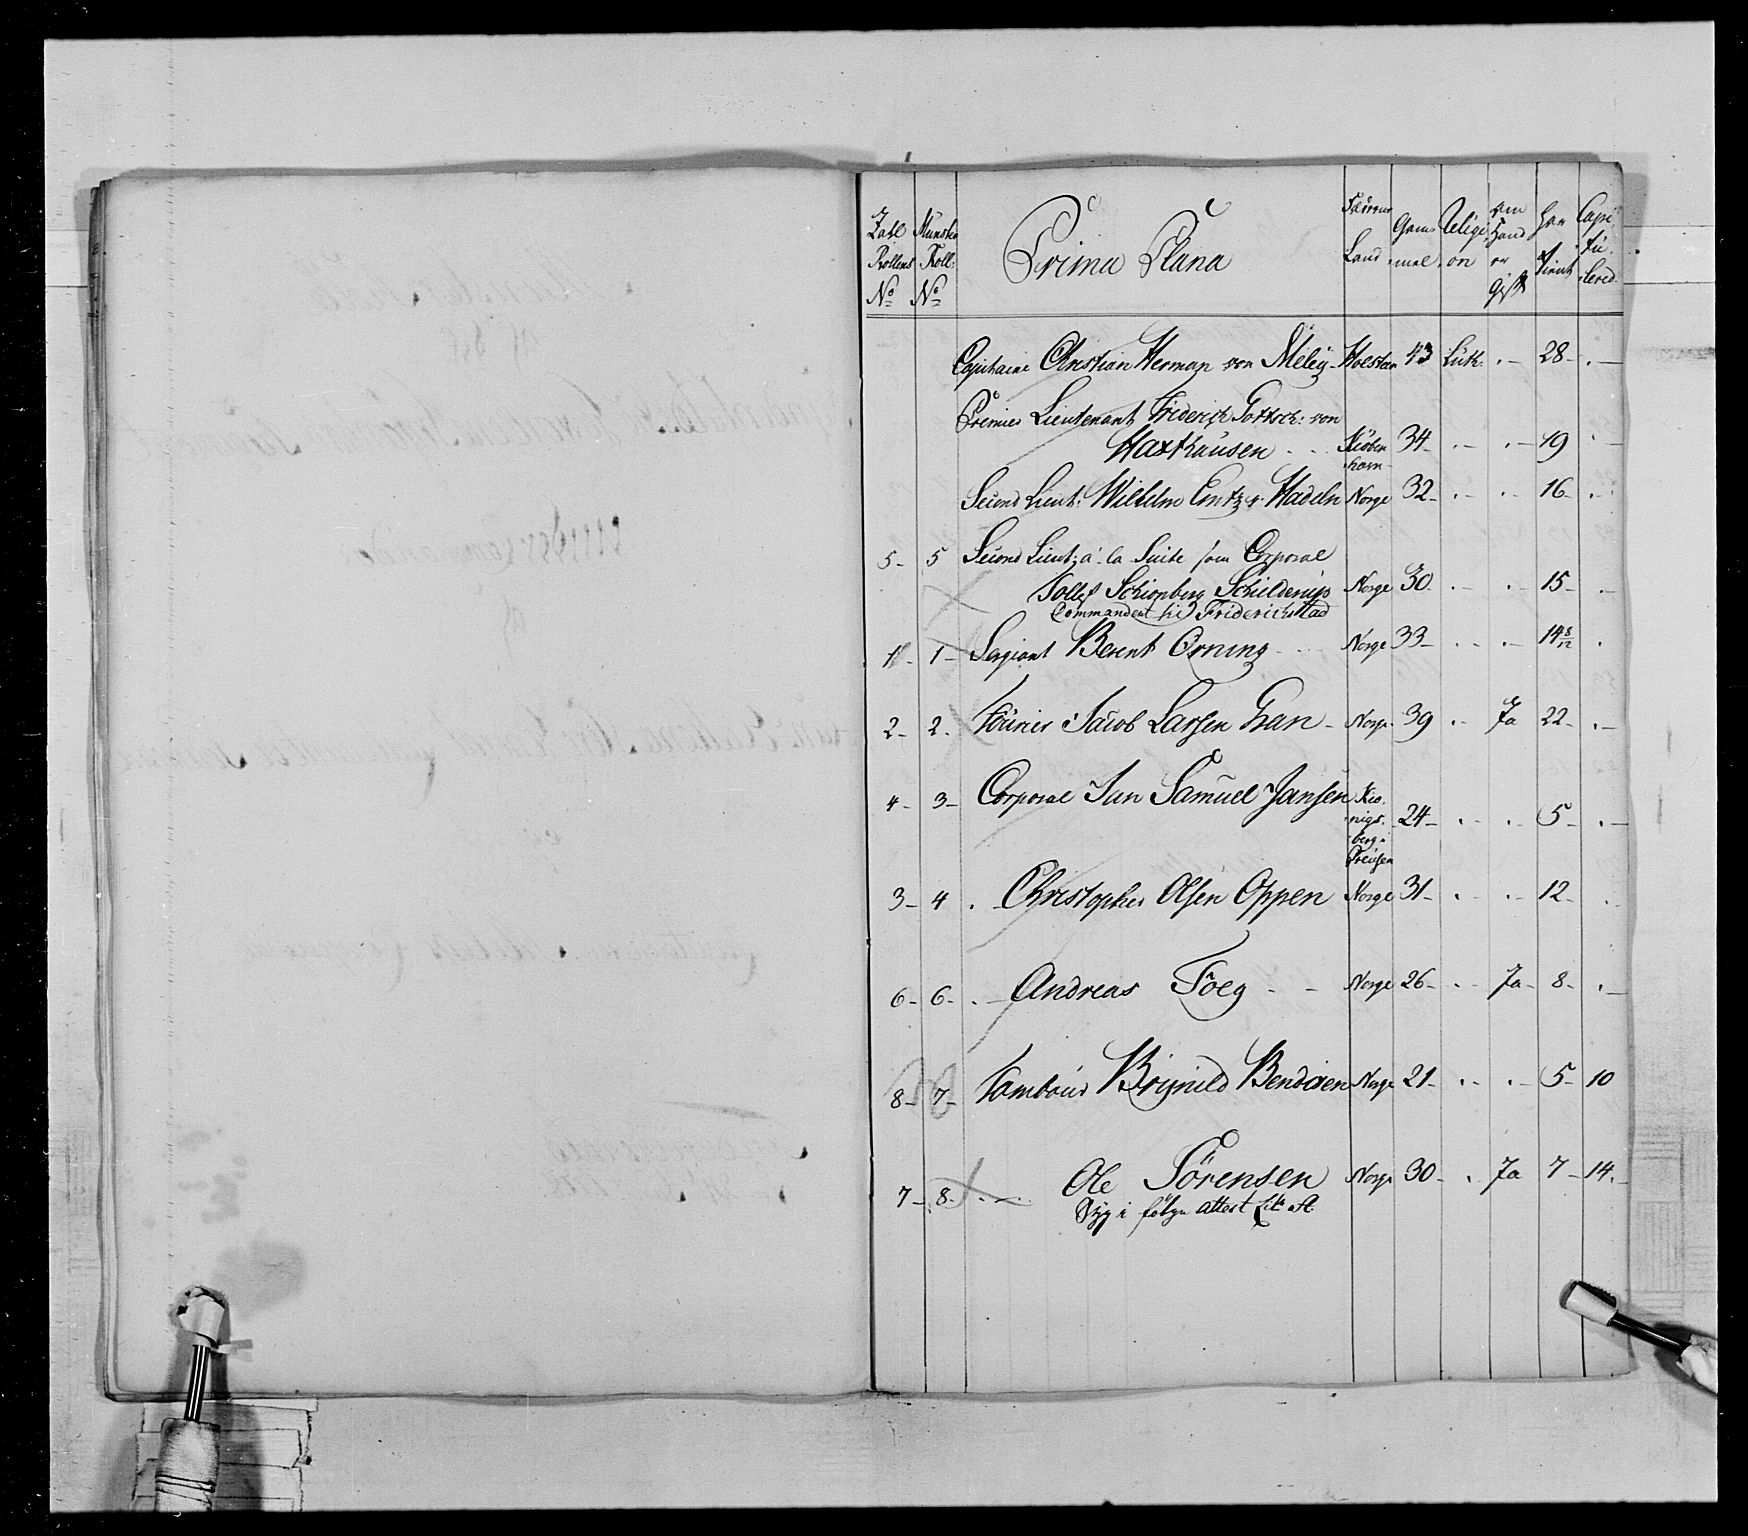 Zahl Rollens No | Munster Roll: No | Prima Plana | Land | Gammel | Religion | om Hand er Gift | Har tient | Capituleret
Capitaine Christian Herman von Meley - Holsten 43 Luth. . - 28 - . -
Premier Lieutenant Friderich Gottsch: von
Haxthausen - . . Kiöbenhavn 34 - . - . - 19 . -
Second Lieut: Wilhelm v. Hadeln Norge 32 - . - . - 16 - . -
5 - 5 Second Lieut: á la Suite som Corporal
Tollef Schionberg Norge 30 - . - . - 15 - . -
Commanderet til Friderichstad
1 - 1 - Sergiant Berent Orning - . . . Norge 33 - . - . - 14 8/12 .
2 - 2 . Fourier Jacob Larsen Gran - Norge 39 . - Ja 22 - . -
4 - 3 - Corporal Jan Samuel Jansen Kionigsberg i Preusen 24 - . - . - 5 - . -
3 - 4 . - Christopher Olsen Oppen Norge 31 - . - . - 12 - . .
6 - 6 - . - Andreas Foeg - - Norge 26 - . - Ja - 8 - . -
8 - 7 - Tambour Bendixen Norge 21 - . - . - 5 - 10
7 - 8 - . - Ole Sörensen Norge 30 - . Ja 7 - 14 . -
Syg i fölge Attest Lit: A.